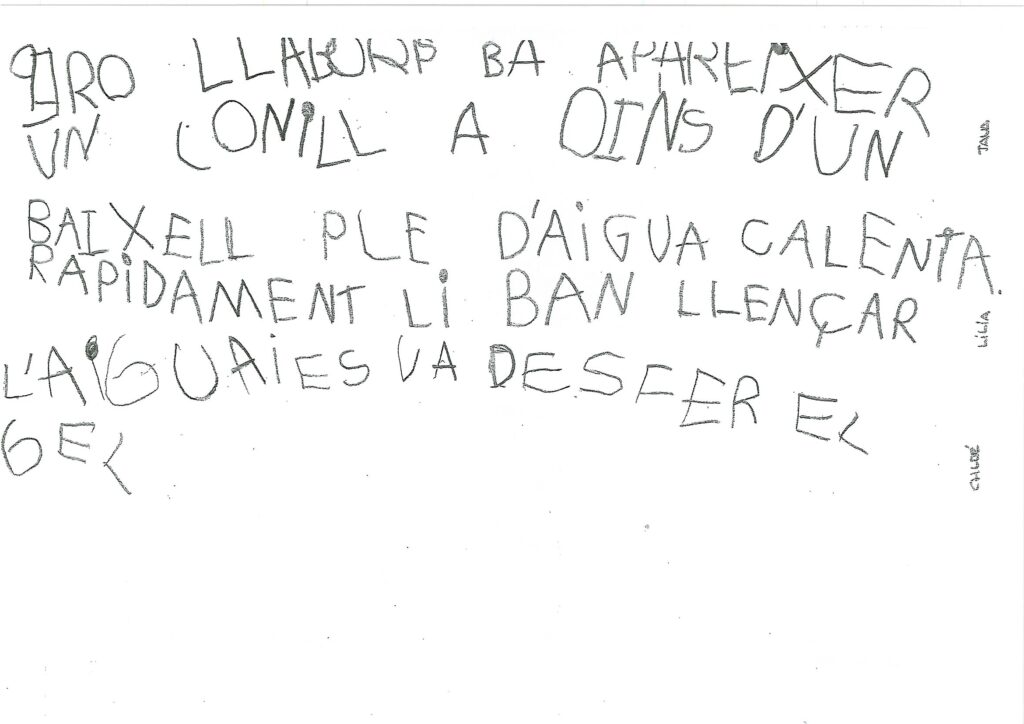 PRO LLABORS BA APAREIXER
UN CONILL A DINS D'UN
BAIXELL PLE D'AIGUA CALENTA.
RAPIDAMENT LI BAN LLENÇAR
L'AIGUAIES VA DESFER EL
GEL
JANA
LILIA
CHLOÉ